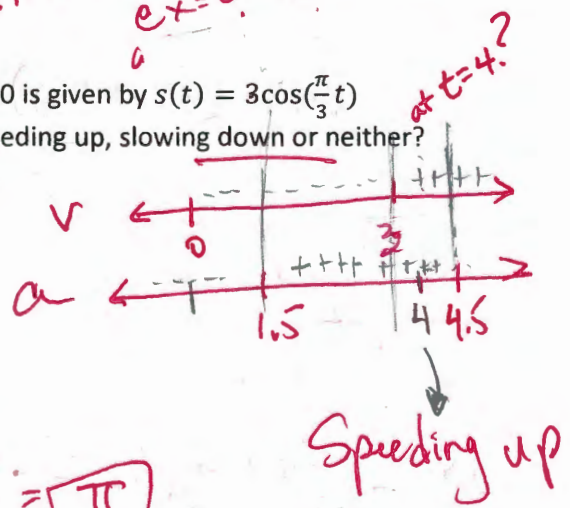 at t=4?
0 is given by s(t) = 3cos(π/3 t)
eding up, slowing down or neither?
- - - - - - + + + + +
v
0 3
- - - - + + + + + + + +
a
1.5 4 4.5
Speeding up
= π